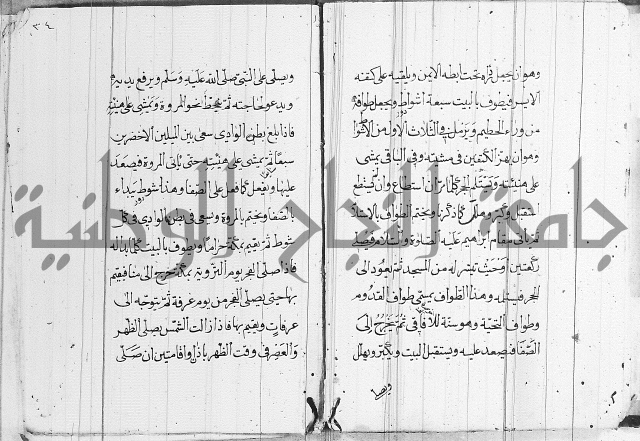 وهو ان يجعل رداه تحت ابطه الايمن ويلقيه على كتفه
الايسر فيطوف بالبيت سبعة اشواط ويجعل طوافه
من وراء الحطيم ويرمل في الثلاث الاول من الاشواط
وهو ان يهز الكتفين في مشيته وفي الباقي يمشي
على هينته ويستلم الحجر كلما مر ان استطاع وان لم يستطع
استقبل وكبر وهلل كما ذكرنا ويختم الطواف بالاستلام
ثم ياتي مقام ابراهيم عليه الصلوة والسلام فيصلي
ركعتين او حيث تيسر له من المسجد ثم يعود الى
الحجر فيستلمه وهذا الطواف يسمى طواف القدوم
وطواف التحية وهو سنة للافاقي ثم يخرج الى
الصفا فيصعد عليه ويستقبل البيت ويكبر ويهلل
ويصلي
٣٤
ويصلي على النبي صلى الله عليه وسلم ويرفع يديه
ويدعو لحاجته ثم ينحط نحو المروة ويمشي على هينته
فاذا بلغ بطن الوادي سعى بين الميلين الاخضرين
سعيا ثم يمشي على هينته حتى ياتي المروة فيصعد
عليها ويفعل كما فعل على الصفا وهذا شوط يبداء
بالصفا ويختم بالمروة ويسعى في بطن الوادي في كل
شوط ثم يقيم بمكة حراما ويطوف بالبيت كلما بدا له
فاذا صلى الفجر يوم التروية بمكة خرج الى منا فيقيم
بها حتى يصلي الفجر من يوم عرفة ثم يتوجه الى
عرفات ويقيم بها فاذا زالت الشمس يصلي الظهر
والعصر في وقت الظهر باذان واقامتين ان صلى
جامعة النجاح الوطنية